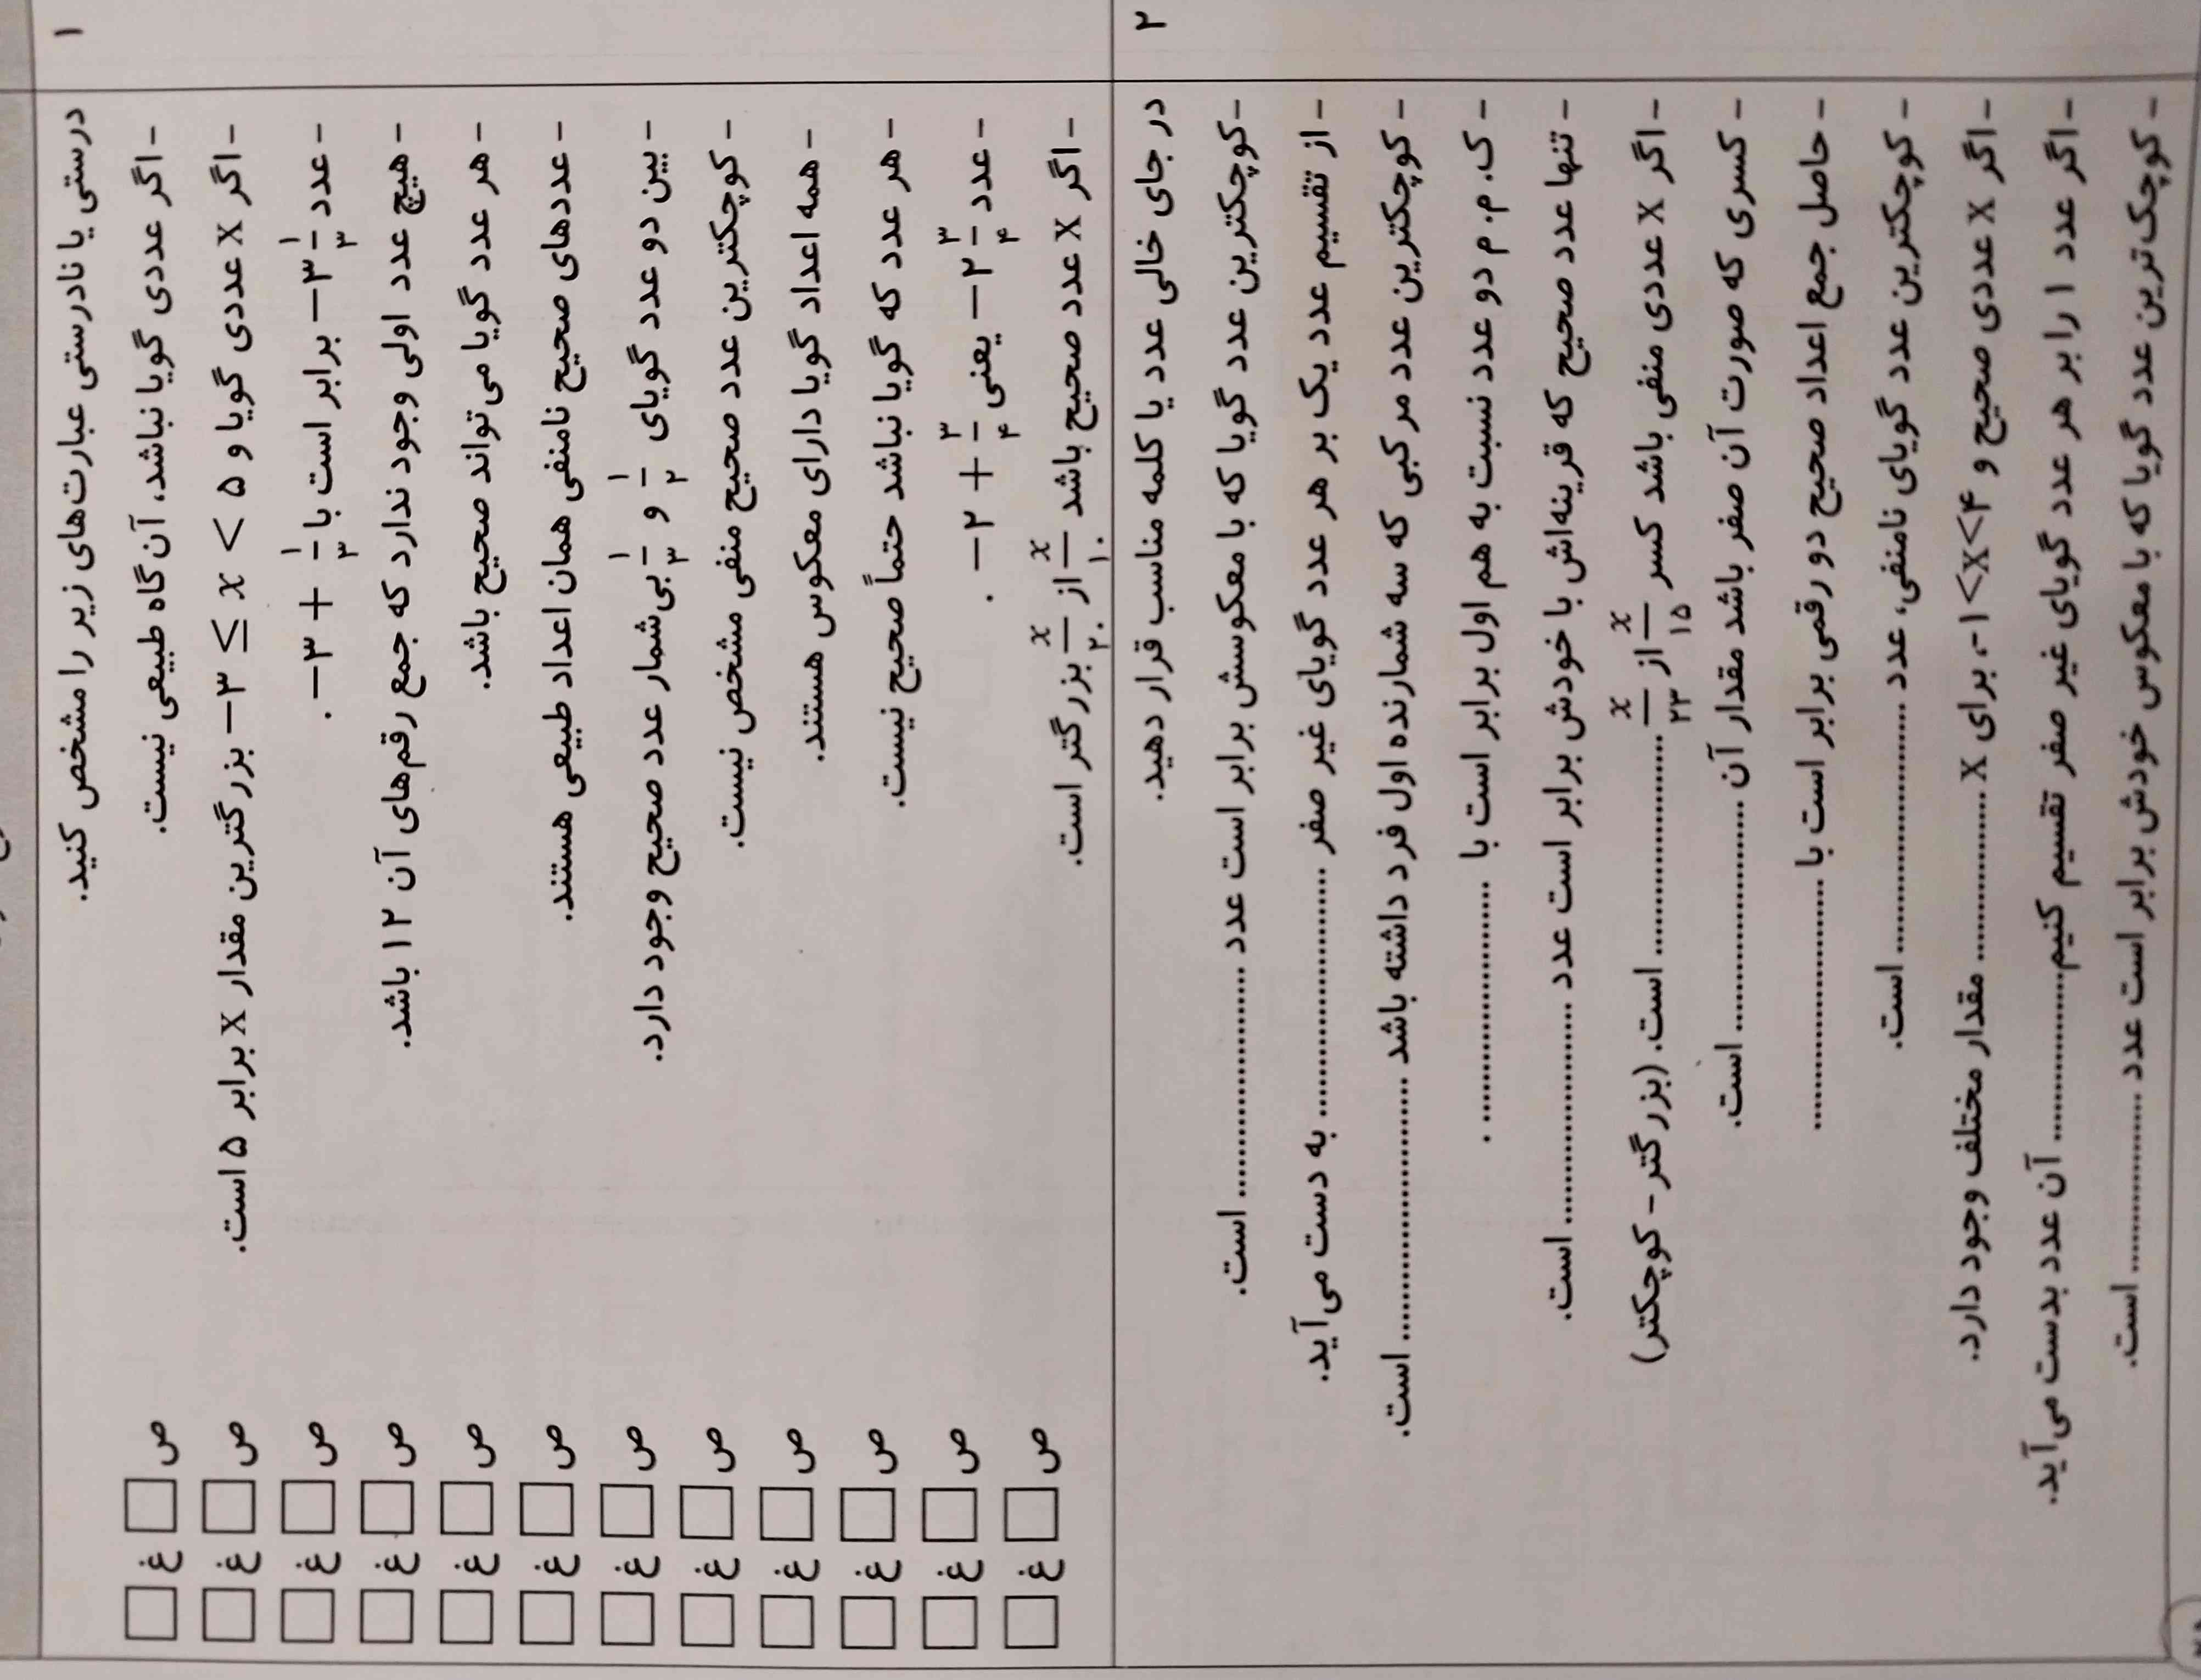 ۱
درستی یا نادرستی عبارت‌های زیر را مشخص کنید.
- اگر عددی گویا نباشد، آن گاه طبیعی نیست. ص □ غ □
- اگر x عددی گویا و ۵ > x ≥ ۳− بزرگترین مقدار x برابر ۵ است. ص □ غ □
- عدد −۳ ۱/۳ برابر است با −۳ + ۱/۳ . ص □ غ □
- هیچ عدد اولی وجود ندارد که جمع رقم‌های آن ۱۲ باشد. ص □ غ □
- هر عدد گویا می‌تواند صحیح باشد. ص □ غ □
- عددهای صحیح نامنفی همان اعداد طبیعی هستند. ص □ غ □
- بین دو عدد گویای ۱/۲ و ۱/۳ بی‌شمار عدد صحیح وجود دارد. ص □ غ □
- کوچکترین عدد صحیح منفی مشخص نیست. ص □ غ □
- همه اعداد گویا دارای معکوس هستند. ص □ غ □
- هر عدد که گویا نباشد حتماً صحیح نیست. ص □ غ □
- عدد −۲ ۳/۴ یعنی −۲ + ۳/۴ . ص □ غ □
- اگر x عدد صحیح باشد x/۱۰ از x/۲۰ بزرگتر است. ص □ غ □
۲
در جای خالی عدد یا کلمه مناسب قرار دهید.
- کوچکترین عدد گویا که با معکوسش برابر است عدد .................... است.
- از تقسیم عدد یک بر هر عدد گویای غیر صفر .................... به دست می‌آید.
- کوچکترین عدد مرکبی که سه شمارنده اول فرد داشته باشد .................... است.
- ک. م. م دو عدد نسبت به هم اول برابر است با .................... .
- تنها عدد صحیح که قرینه‌اش با خودش برابر است عدد .................... است.
- اگر x عددی منفی باشد کسر x/۱۵ از x/۲۳ .................... است. (بزرگتر - کوچکتر)
- کسری که صورت آن صفر باشد مقدار آن .................... است.
- حاصل جمع اعداد صحیح دو رقمی برابر است با ....................
- کوچکترین عدد گویای نامنفی، عدد .................... است.
- اگر x عددی صحیح و ۴>x>۱-، برای x .............. مقدار مختلف وجود دارد.
- اگر عدد ۱ را بر هر عدد گویای غیر صفر تقسیم کنیم.............. آن عدد بدست می‌آید.
- کوچک‌ترین عدد گویا که با معکوس خودش برابر است عدد .............. است.